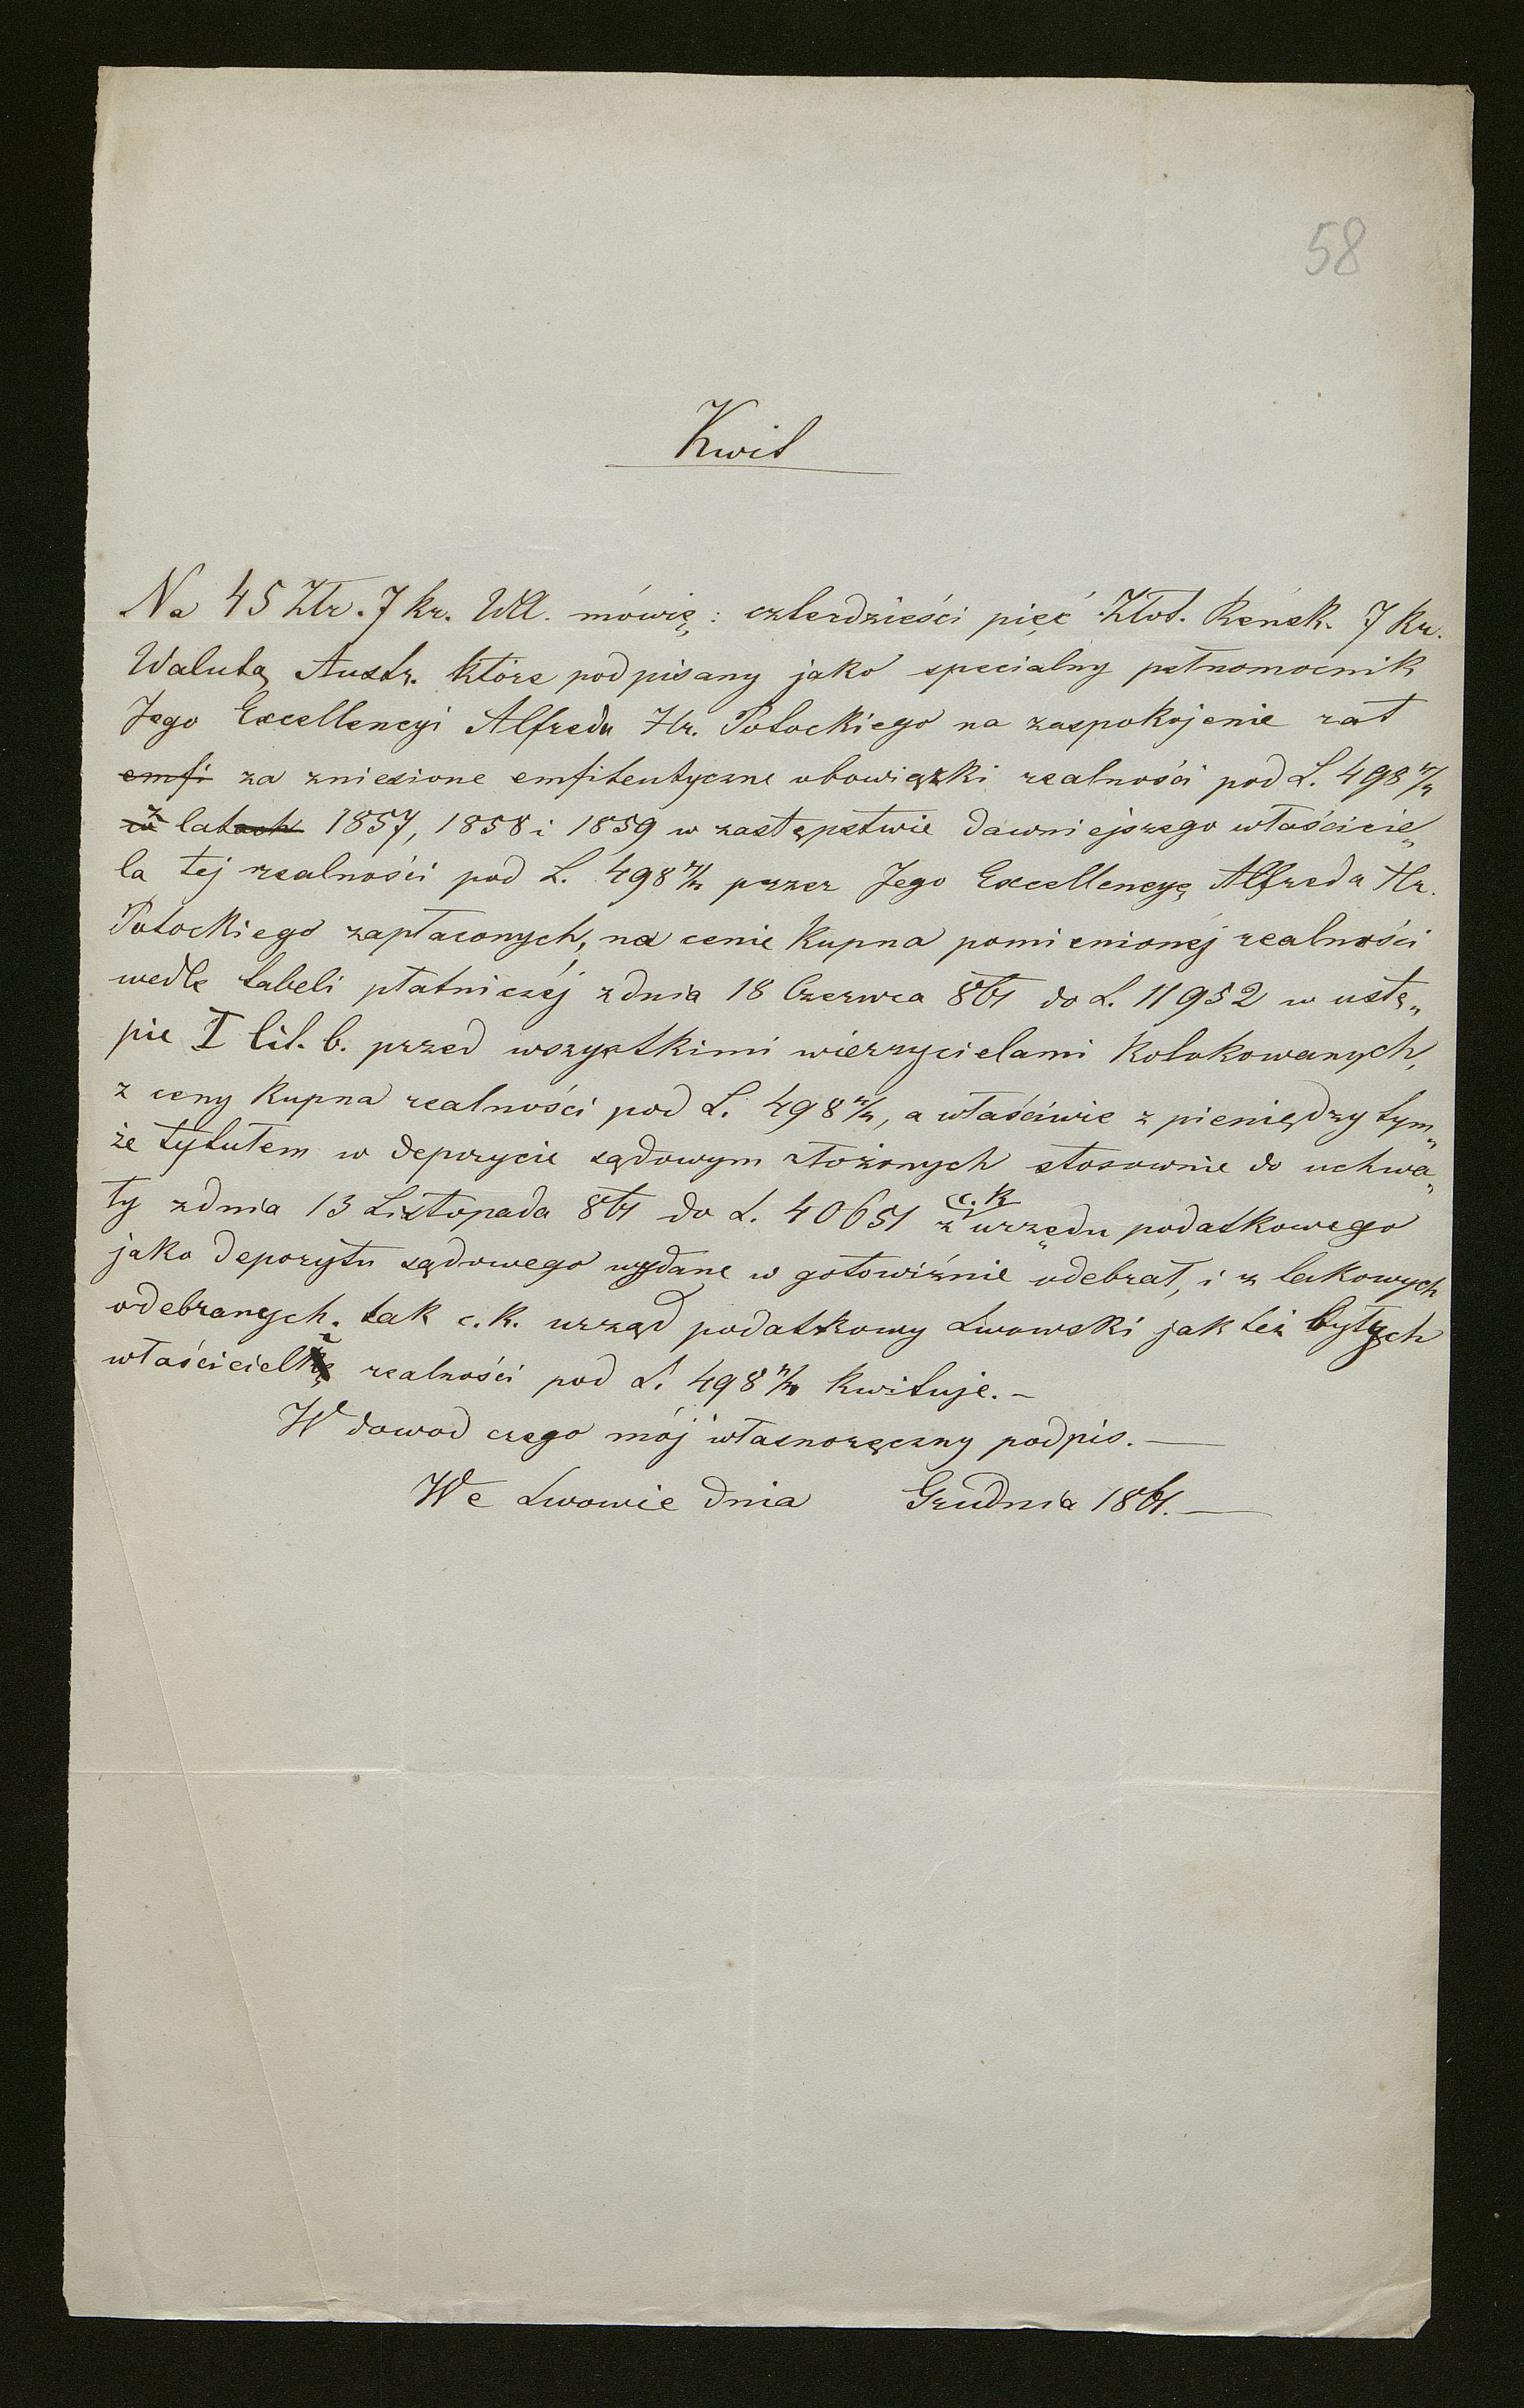 58
Kwit
Na 45 Złr. 7 kr. WA. mówię: czterdzieści pięć Złot. Reńsk. 7 Kr.
Walutą Austr. które podpisany jako specialny pełnomocnik
Jego Excellencyi Alfreda Hr. Potockiego na zaspokojenie rat
emfi za zniesione emfiteutyczne obowiązki realności pod L. 498 4/4
w z latach 1857, 1858 i 1859 w zastępstwie dawniejszego właścicie„
la tej realności pod L. 498 4/4 przez Jego Excellencyę Alfreda Hr.
Potockiego zapłaconych, na cenie Kupna pomienionéj realności
wedle tabeli płatniczéj z dnia 18 Czerwca 861 do L. 11952 w ustę„
pie I lit. b. przed wszystkimi wierzycielami kolokowanych,
z ceny Kupna realności pod L. 498 4/4, a właściwie z pieniędzy tym„
że tytułem w depozycie sądowym złożonych stosownie do uchwa„
ły z dnia 13 Listopada 861 do L. 40651 z c. k. urzędu podatkowego
jako depozytu sądowego wydane w gotowiźnie odebrał, i z takowych
odebranych. tak c. k. urząd podatkowy Lwowski jak też byłych
właścicieli realności pod L. 498 4/4 kwituje. –
W dowod czego mój własnoręczny podpis. —
We Lwowie dnia Grudnia 1861. —